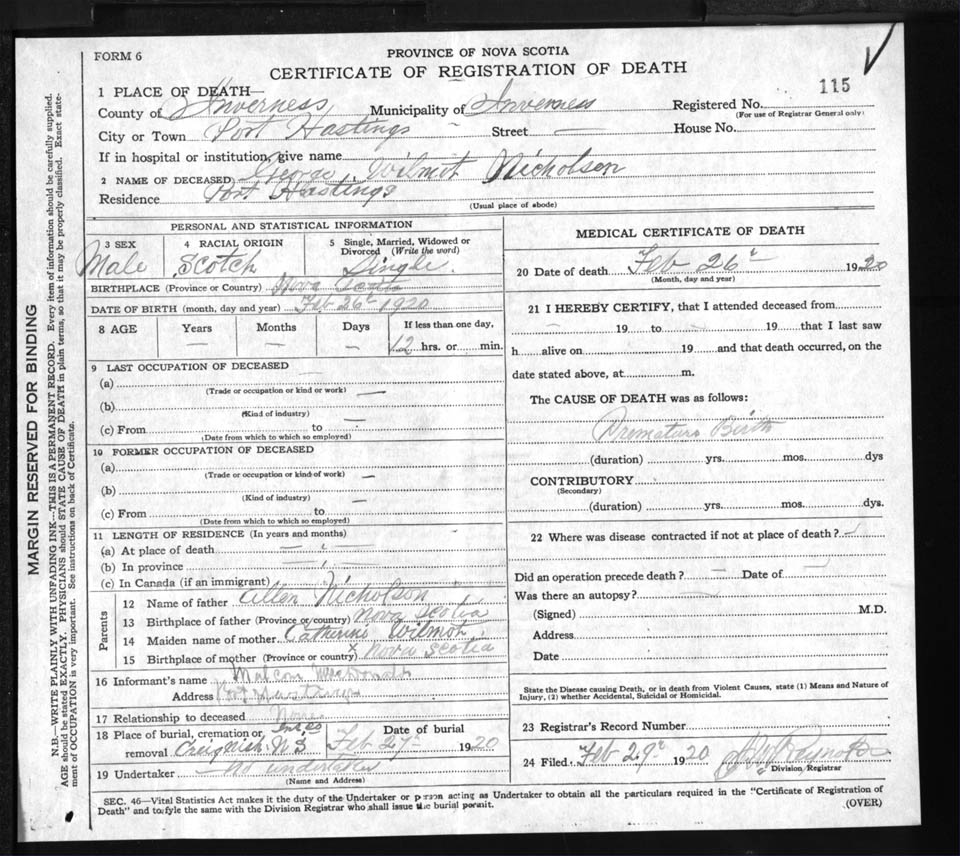 FORM 6
PROVINCE OF NOVA SCOTIA
CERTIFICATE OF REGISTRATION OF DEATH
115
1 PLACE OF DEATH—
County of Inverness Municipality of Inverness Registered No.
(For use of Registrar General only)
City or Town Port Hastings Street — House No.
If in hospital or institution, give name
2 NAME OF DECEASED George Wilmot Nicholson
Residence Port Hastings
(Usual place of abode)
PERSONAL AND STATISTICAL INFORMATION
3 SEX Male
4 RACIAL ORIGIN Scotch
5 Single, Married, Widowed or Divorced (Write the word) Single.
BIRTHPLACE (Province or Country) Nova Scotia
DATE OF BIRTH (month, day and year) Feb 26th 1920
8 AGE Years — Months — Days — If less than one day, 12 hrs. or min.
9 LAST OCCUPATION OF DECEASED
(a) —
(Trade or occupation or kind or work)
(b)
(Kind of industry)
(c) From to —
(Date from which to which so employed)
10 FORMER OCCUPATION OF DECEASED
(a)
(Trade or occupation or kind of work) —
(b)
(Kind of industry) —
(c) From to —
(Date from which to which so employed)
11 LENGTH OF RESIDENCE (In years and months)
(a) At place of death — —
(b) In province — —
(c) In Canada (if an immigrant)
Parents
12 Name of father Allen Nicholson
13 Birthplace of father (Province or country) Nova Scotia
14 Maiden name of mother Catherine Wilmot
15 Birthplace of mother (Province or country) Nova Scotia
16 Informant's name Malcom MacDonald
Address Port Hastings
17 Relationship to deceased None
18 Place of burial, cremation, or removal Creignish N S
Date of burial Feb 27th 1920
19 Undertaker No undertaker
(Name and Address)
MEDICAL CERTIFICATE OF DEATH
20 Date of death Feb 26th 1920
(Month, day and year)
21 I HEREBY CERTIFY, that I attended deceased from
— 19 to — 19 that I last saw
h alive on 19 and that death occurred, on the
date stated above, at m.
The CAUSE OF DEATH was as follows:
Premature Birth
(duration) yrs. mos. dys
CONTRIBUTORY
(Secondary)
(duration) yrs. mos. dys.
22 Where was disease contracted if not at place of death? —
Did an operation precede death? — Date of —
Was there an autopsy? —
(Signed) M.D.
Address
Date
State the Disease causing Death, or in death from Violent Causes, state (1) Means and Nature of
Injury, (2) whether Accidental, Suicidal or Homicidal.
23 Registrar's Record Number
24 Filed Feb 29th 1920
Division Registrar
SEC. 46—Vital Statistics Act makes it the duty of the Undertaker or person acting as Undertaker to obtain all the particulars required in the "Certificate of Registration of
Death" and to fyle the same with the Division Registrar who shall issue the burial permit.
(OVER)
MARGIN RESERVED FOR BINDING
N.B.—WRITE PLAINLY WITH UNFADING INK—THIS IS A PERMANENT RECORD. Every item of information should be carefully supplied.
AGE should be stated EXACTLY. PHYSICIANS should STATE CAUSE OF DEATH in plain terms, so that it may be properly classified. Exact state-
ment of OCCUPATION is very important. See instructions on back of Certificate.